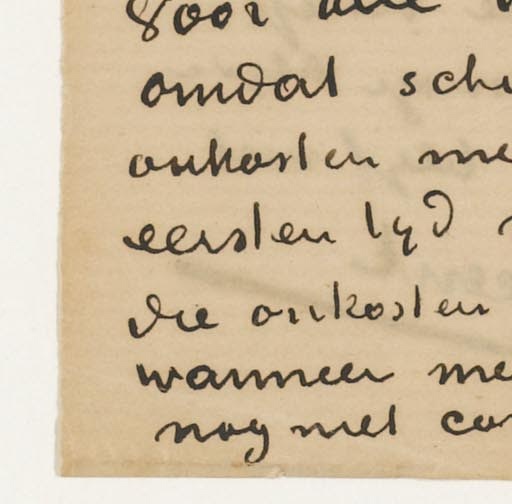 Voor alle
omdat sch
onkosten me
eersten tyd
die onkosten
wanneer me
nog met co